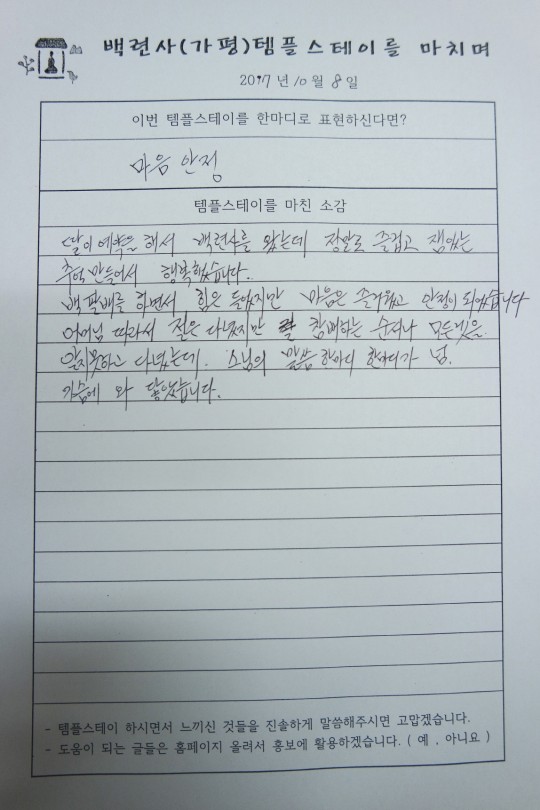 백련사(가평)템플스테이를 마치며
2017년 10월 8일
이번 템플스테이를 한마디로 표현하신다면?
마음 안정
템플스테이를 마친 소감
딸이 예약을 해서 백련사를 왔는데 정말로 즐겁고 잼있는
추억 만들어서 행복했습니다.
백팔배를 하면서 힘은 들었지만 마음은 즐거웠고 안정이 되었습니다
어머님 따라서 절은 다녔지만 참배하는 순서나 모든것을
알지못하고 다녔는데. 스님의 말씀 한마디 한마디가 넘.
가슴에 와 닿았습니다.
- 템플스테이 하시면서 느끼신 것들을 진솔하게 말씀해주시면 고맙겠습니다.
- 도움이 되는 글들은 홈페이지 올려서 홍보에 활용하겠습니다. ( 예 , 아니요 )